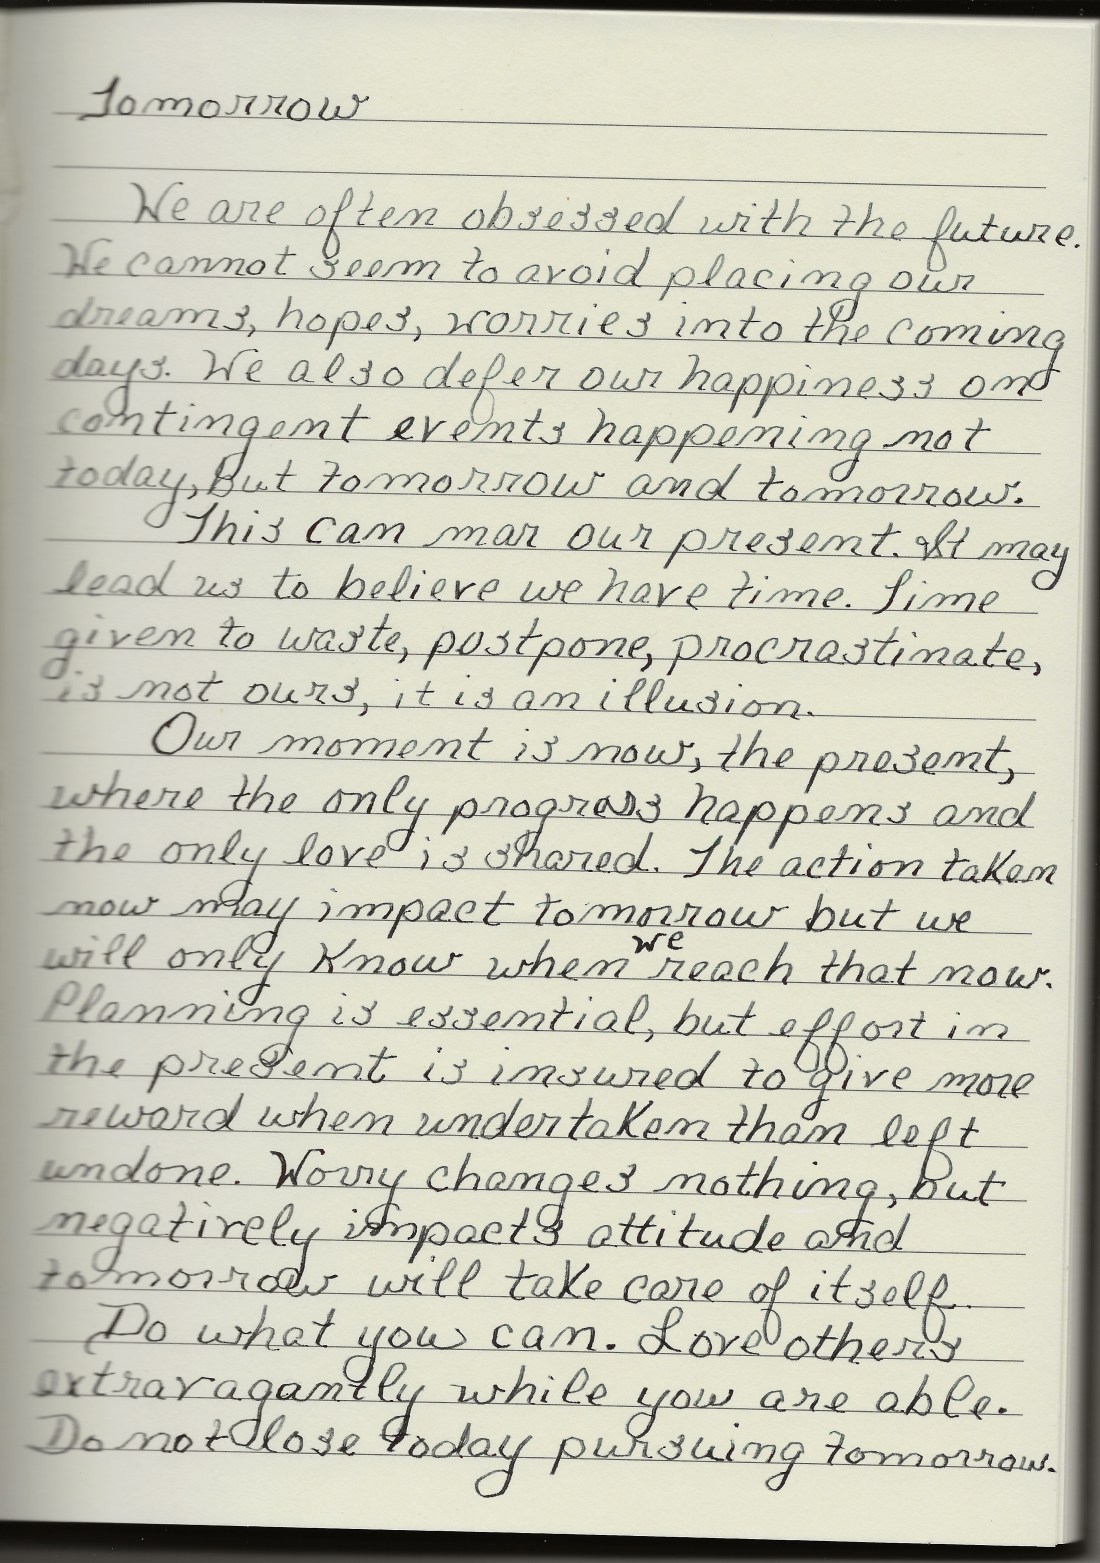 Tomorrow
We are often obsessed with the future.
We cannot seem to avoid placing our
dreams, hopes, worries into the coming
days. We also defer our happiness on
contingent events happening not
today, but tomorrow and tomorrow.
This can mar our present. It may
lead us to believe we have time. Time
given to waste, postpone, procrastinate,
is not ours, it is an illusion.
Our moment is now, the present,
where the only progress happens and
the only love is shared. The action taken
now may impact tomorrow but we
will only know when we reach that now.
Planning is essential, but effort in
the present is insured to give more
reward when undertaken than left
undone. Worry changes nothing, but
negatively impacts attitude and
tomorrow will take care of itself.
Do what you can. Love others
extravagantly while you are able.
Do not lose today pursuing tomorrow.